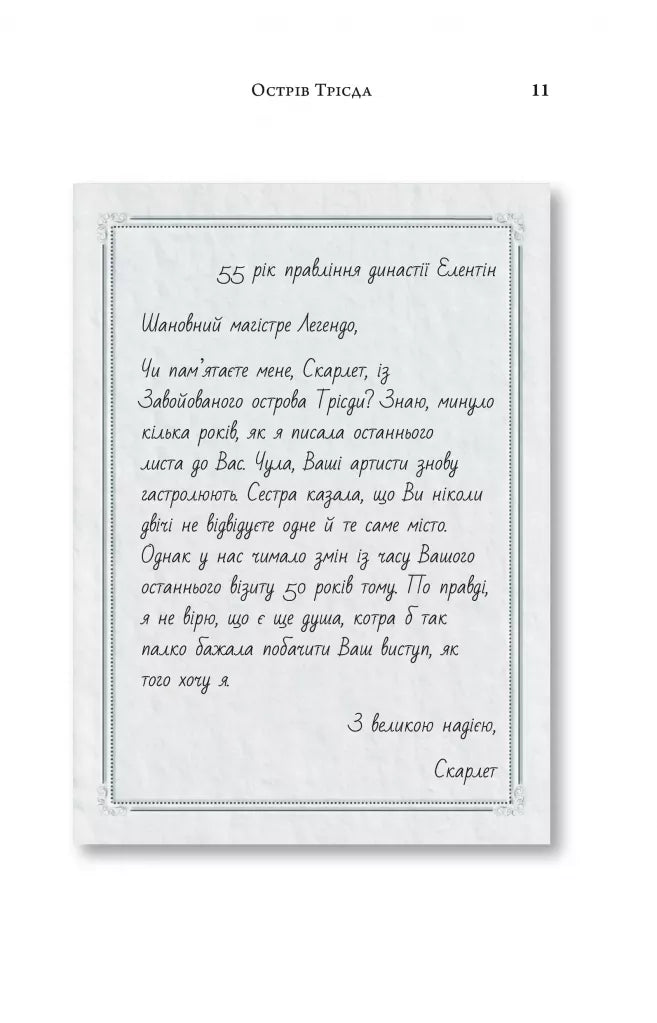 Острів Трісда
11
55 рік правління династії Елентін
Шановний магістре Легендо,
Чи пам'ятаєте мене, Скарлет, із
Завойованого острова Трісди? Знаю, минуло
кілька років, як я писала останнього
листа до Вас. Чула, Ваші артисти знову
гастролюють. Сестра казала, що Ви ніколи
двічі не відвідуєте одне й те саме місто.
Однак у нас чимало змін із часу Вашого
останнього візиту 50 років тому. По правді,
я не вірю, що є ще душа, котра б так
палко бажала побачити Ваш виступ, як
того хочу я.
З великою надією,
Скарлет